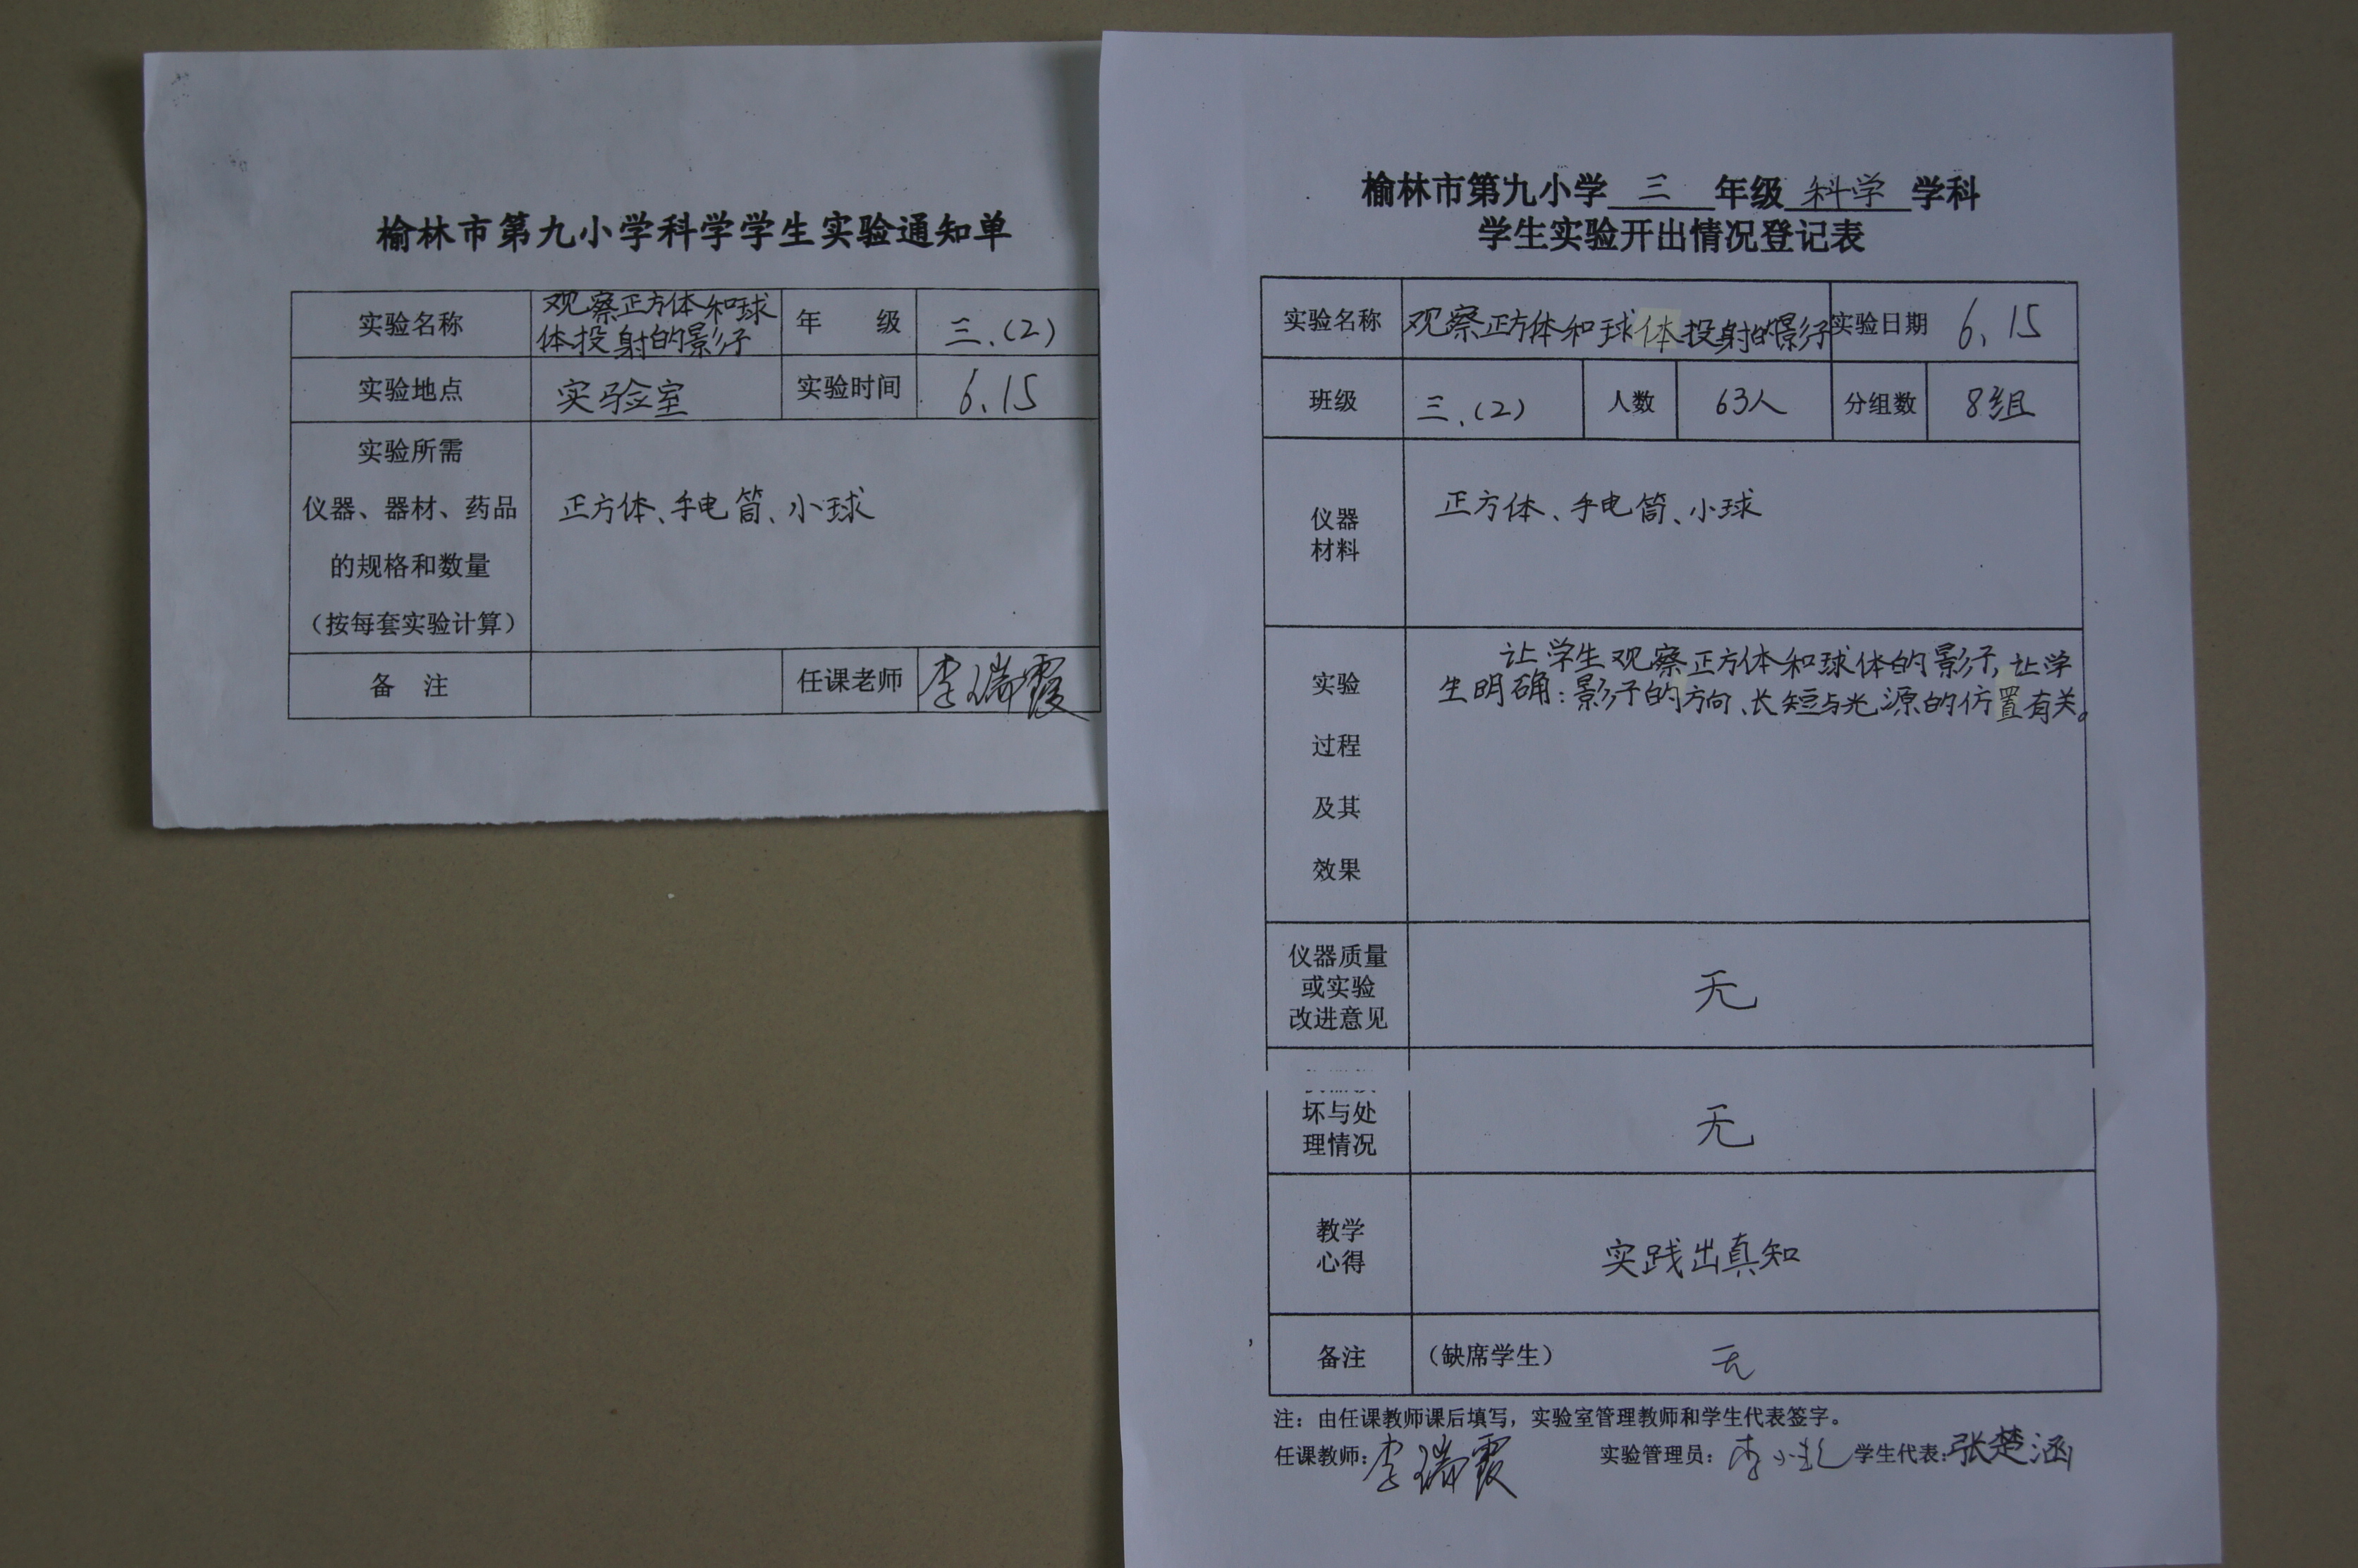 榆林市第九小学科学学生实验通知单
实验名称 观察正方体和球体投射的影子 年 级 三.(2)
实验地点 实验室 实验时间 6.15
实验所需
仪器、器材、药品
的规格和数量
（按每套实验计算）
正方体、手电筒、小球
备 注 任课老师 李瑞霞
榆林市第九小学 三 年级 科学 学科
学生实验开出情况登记表
实验名称 观察正方体和球体投射的影子 实验日期 6.15
班级 三.(2) 人数 63人 分组数 8组
仪器
材料
正方体、手电筒、小球
实验
过程
及其
效果
让学生观察正方体和球体的影子,让学
生明确:影子的方向、长短与光源的位置有关。
仪器质量
或实验
改进意见
无
坏与处
理情况
无
教学
心得
实践出真知
备注 （缺席学生） 无
注：由任课教师课后填写，实验室管理教师和学生代表签字。
任课教师: 李瑞霞 实验管理员: 李小 学生代表: 张楚涵